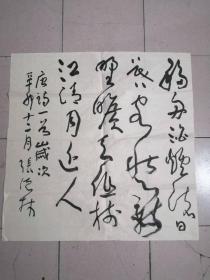 移舟泊煙渚日
暮客愁新
野曠天低樹
江清月近人
唐詩一首歲次
辛卯十二月張